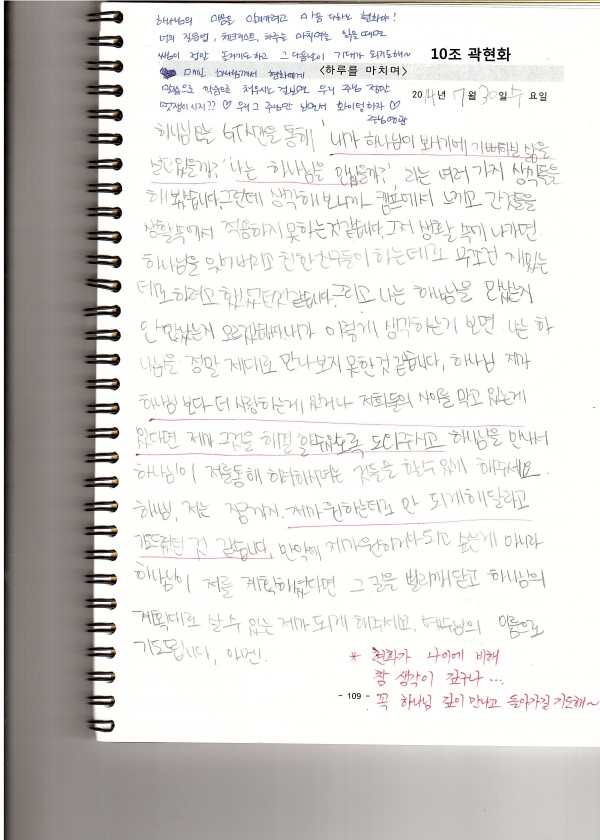 하나님의 마음을 알아가려고 마음 다하는 현화야!
너의 질문법, 체크리스트, 하루를 마치며를 읽을 때면
쌤이 정말 놀라기도 하고 그 다음날이 기대가 되기도 해~
매일 하나님께서 현화에게
말씀으로 마음으로 채우시는 걸 보면 우리 주님 정말
멋쟁이시지?? ♡ 우리 그 주님만 보면서 화이팅하자 ♡
10조 곽현화
<하루를 마치며>
2014년 7월 30일 수요일
하나님은 GT시간을 통해 '내가 하나님이 보시기에 기뻐하실 삶을
살고있을까? 나는 하나님을 만났을까?', 라는 여러가지 생각들을
해봤습니다. 그런데 생각해보니까 캠프에서 느끼고 간것들을
생활속에서 적용하지 못하는것같습니다. 그저 생활 속에 나가면
하나님을 잊어버리고 친한친구들이 하는데로 무조건 재밌는
데로 하려고 했었던것 같습니다. 그리고 나는 하나님을 만났는지
안 만났는지 모르겠습니다. 내가 이렇게 생각하는거 보면 나는 하
나님을 정말 제대로 만나보지 못한것 같습니다. 하나님 제가
하나님 보다 더 사랑하는게 있거나 저희들의 사이를 막고 있는게
있다면 제가 그것을 해결 할수있도록 도와주시고 하나님을 만나서
하나님이 저를통해 하려하시는 것들을 할수 있게 해주세요.
하나님, 저는 지금까지 제가원하는데로만 되게해달라고
기도드렸던 것 같습니다. 만약에 제가원하거나 되고 싶은게 아니라
하나님이 저를 계획하셨다면 그 길을 빨리깨닫고 하나님의
계획대로 살 수 있는 제가 되게 해주세요. 예수님의 이름으로
기도드립니다, 아멘!
* 현화가 나이에 비해
참 생각이 깊구나...
꼭 하나님 깊이 만나고 돌아가길 기도해~
- 109 -